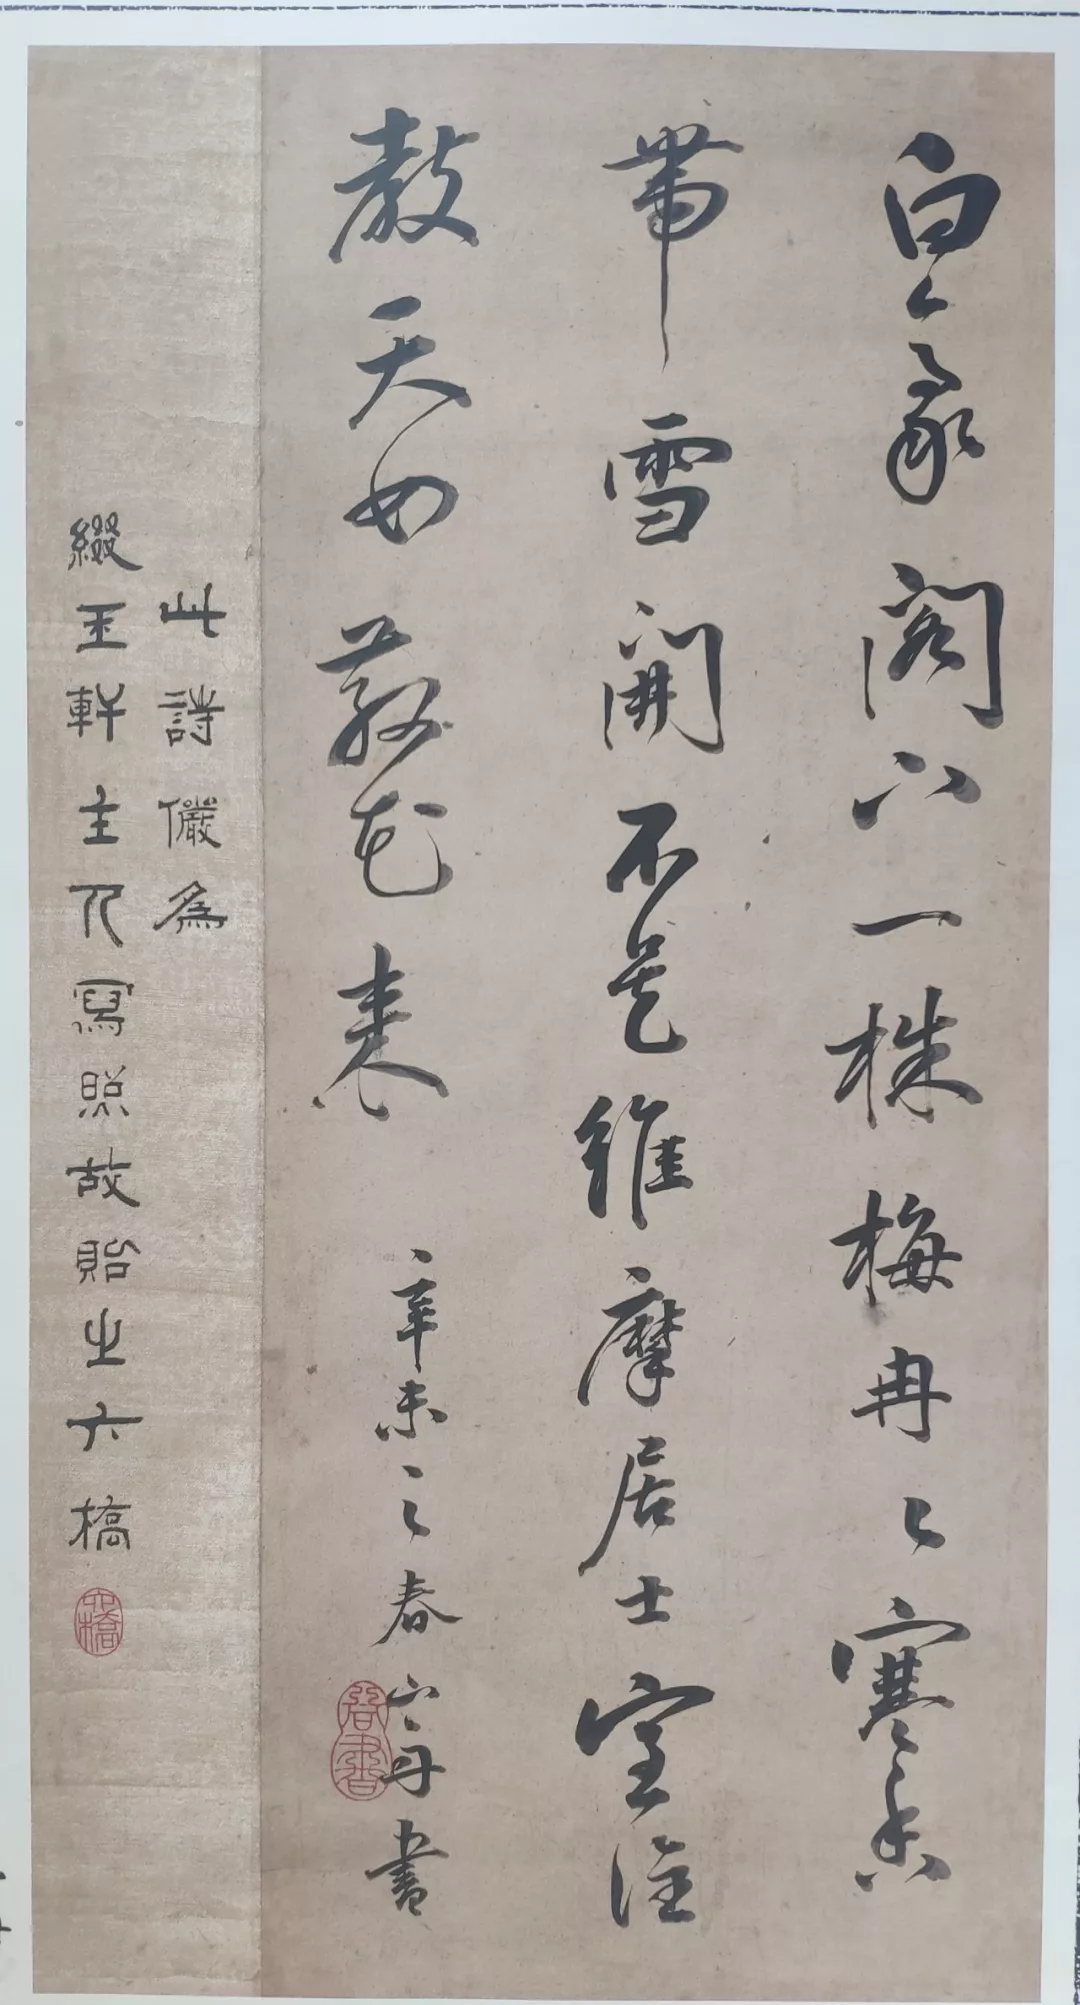 白象閣下一株梅冉〻寒香
帶雪開不是維摩居士室誰
教天女散花來 辛未之春 山舟書
此詩儼為
綴玉軒主人寫照故貽之六橋
六橋